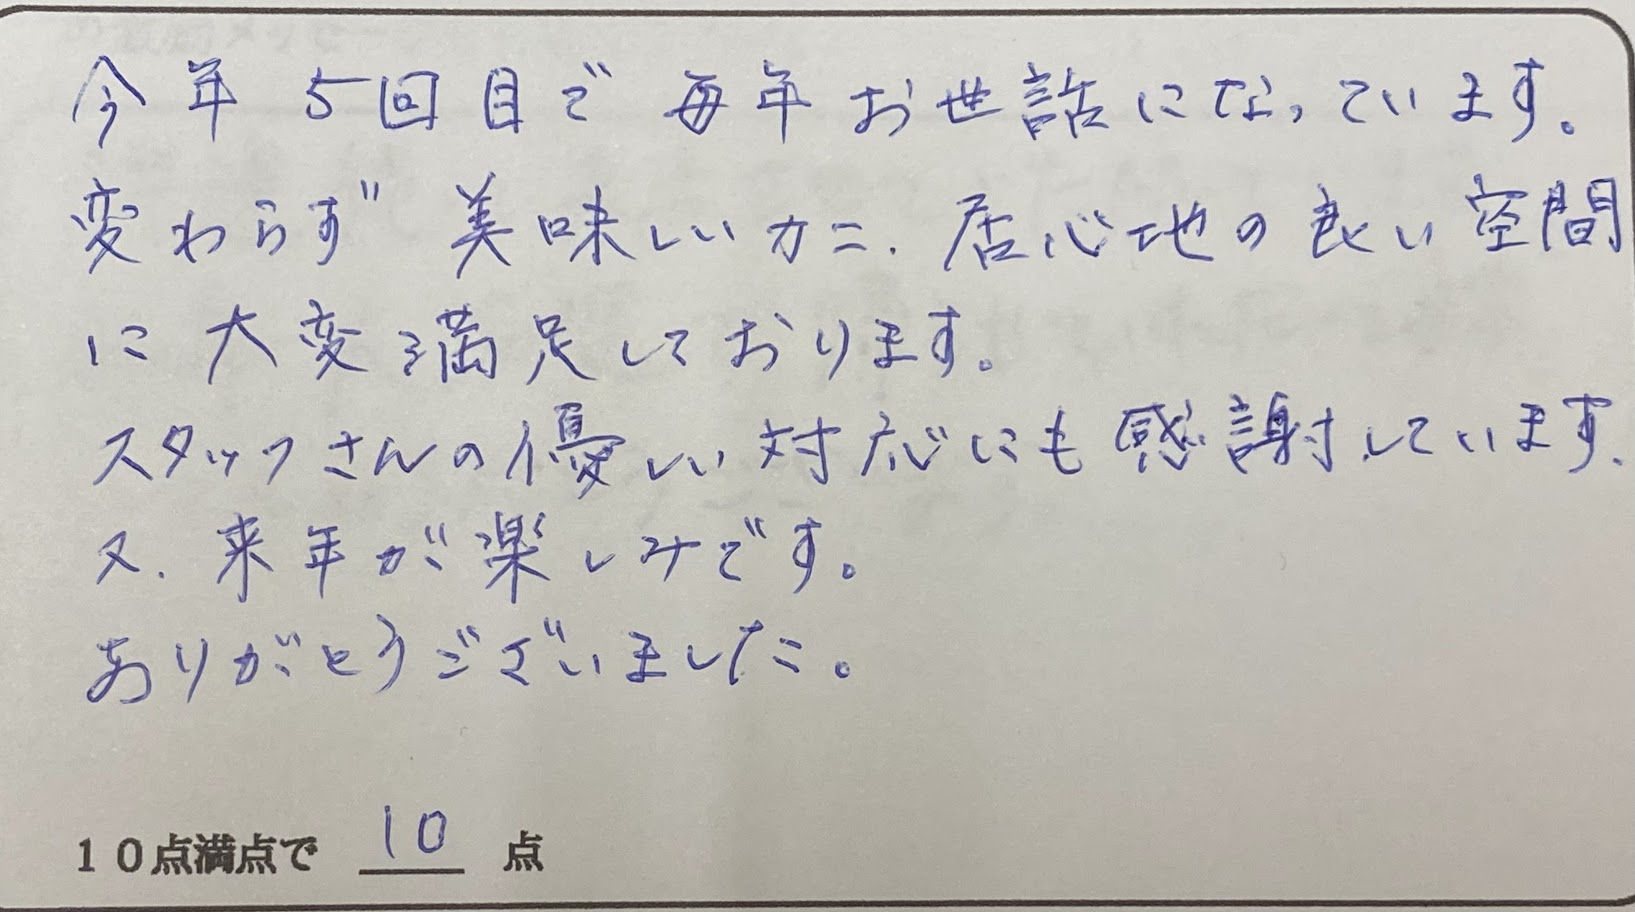 今年5回目で毎年お世話になっています。
変わらず美味しいカニ、居心地の良い空間
に大変満足しております。
スタッフさんの優しい対応にも感謝しています。
又、来年が楽しみです。
ありがとうございました。
10点満点で 10 点